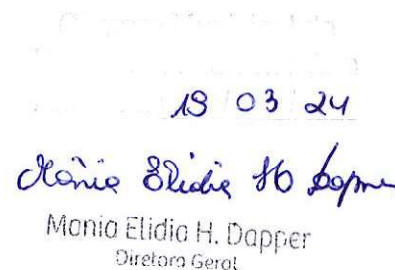 19 03 24
Mânia Elidia H Dapper
Mania Elidia H. Dapper
Diretora Geral